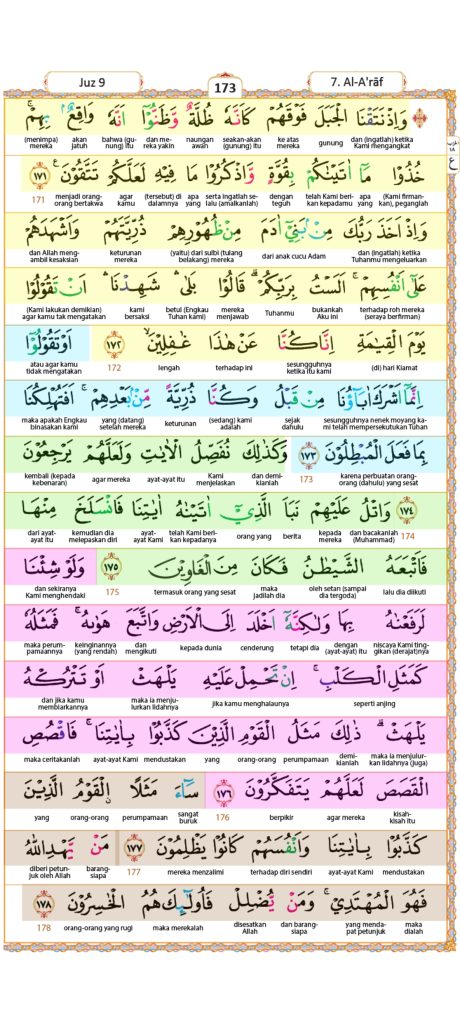 Juz 9
173
7. Al-A'rāf
وَاِذْ نَتَقْنَا الْجَبَلَ فَوْقَهُمْ كَاَنَّهٗ ظُلَّةٌ وَّظَنُّوْٓا اَنَّهٗ وَاقِعٌۢ بِهِمْۚ
dan (ingatlah) ketika Kami mengangkat gunung ke atas mereka seakan-akan (gunung) itu naungan awan dan mereka yakin bahwa (gunung) itu akan jatuh (menimpa) mereka
خُذُوْا مَآ اٰتَيْنٰكُمْ بِقُوَّةٍ وَّاذْكُرُوْا مَا فِيْهِ لَعَلَّكُمْ تَتَّقُوْنَ ۚ ١٧١
(Kami firmankan), peganglah apa yang telah Kami berikan kepadamu dengan teguh serta ingatlah selalu (amalkanlah) apa yang (tersebut) di dalamnya agar kamu menjadi orang-orang bertakwa 171
وَاِذْ اَخَذَ رَبُّكَ مِنْۢ بَنِيْٓ اٰدَمَ مِنْ ظُهُوْرِهِمْ ذُرِّيَّتَهُمْ وَاَشْهَدَهُمْ
dan (ingatlah) ketika Tuhanmu mengeluarkan dari anak cucu Adam (yaitu) dari sulbi (tulang belakang) mereka keturunan mereka dan Allah mengambil kesaksian
عَلٰٓى اَنْفُسِهِمْۚ اَلَسْتُ بِرَبِّكُمْۗ قَالُوْا بَلٰىۛ شَهِدْنَاۛ اَنْ تَقُوْلُوْا
terhadap roh mereka (seraya berfirman) bukankah Aku ini Tuhanmu mereka menjawab betul (Engkau Tuhan kami) kami bersaksi (Kami lakukan demikian) agar kamu tak mengatakan
يَوْمَ الْقِيٰمَةِ اِنَّا كُنَّا عَنْ هٰذَا غٰفِلِيْنَۙ ١٧٢ اَوْ تَقُوْلُوْٓا
(di) hari Kiamat sesungguhnya ketika itu kami terhadap ini lengah 172 atau agar kamu tidak mengatakan
اِنَّمَآ اَشْرَكَ اٰبَاۤؤُنَا مِنْ قَبْلُ وَكُنَّا ذُرِّيَّةً مِّنْۢ بَعْدِهِمْۚ اَفَتُهْلِكُنَا
sesungguhnya nenek moyang kami telah mempersekutukan Tuhan sejak dahulu (sedang) kami adalah keturunan (yang) datang) setelah mereka maka apakah Engkau binasakan kami
بِمَا فَعَلَ الْمُبْطِلُوْنَ ١٧٣ وَكَذٰلِكَ نُفَصِّلُ الْاٰيٰتِ وَلَعَلَّهُمْ يَرْجِعُوْنَ
karena perbuatan orang-orang (dahulu) yang sesat 173 dan demikianlah Kami menjelaskan ayat-ayat itu agar mereka kembali (kepada kebenaran)
١٧٤ وَاتْلُ عَلَيْهِمْ نَبَاَ الَّذِيْٓ اٰتَيْنٰهُ اٰيٰتِنَا فَانْسَلَخَ مِنْهَا
174 dan bacakanlah (Muhammad) kepada mereka berita orang yang telah Kami berikan kepadanya ayat-ayat Kami kemudian dia melepaskan diri dari ayat-ayat itu
فَاَتْبَعَهُ الشَّيْطٰنُ فَكَانَ مِنَ الْغٰوِيْنَ ١٧٥ وَلَوْ شِئْنَا
lalu dia diikuti oleh setan (sampai dia tergoda) maka jadilah dia termasuk orang yang sesat 175 dan sekiranya Kami menghendaki
لَرَفَعْنٰهُ بِهَا وَلٰكِنَّهٗٓ اَخْلَدَ اِلَى الْاَرْضِ وَاتَّبَعَ هَوٰىهُۚ فَمَثَلُهٗ
niscaya Kami tinggikan (derajat)nya dengan (ayat-ayat) itu tetapi dia cenderung kepada dunia dan mengikuti keinginannya (yang rendah) maka perumpamaannya
كَمَثَلِ الْكَلْبِۚ اِنْ تَحْمِلْ عَلَيْهِ يَلْهَثْ اَوْ تَتْرُكْهُ
seperti anjing jika kamu menghalaunya maka ia menjulurkan lidahnya dan jika kamu membiarkannya
يَلْهَثْۗ ذٰلِكَ مَثَلُ الْقَوْمِ الَّذِيْنَ كَذَّبُوْا بِاٰيٰتِنَاۚ فَاقْصُصِ
maka ia menjulurkan lidahnya (juga) demikianlah perumpamaan orang-orang yang mendustakan ayat-ayat Kami maka ceritakanlah
الْقَصَصَ لَعَلَّهُمْ يَتَفَكَّرُوْنَ ١٧٦ سَاۤءَ مَثَلًا ۨالْقَوْمُ الَّذِيْنَ
kisah-kisah itu agar mereka berpikir 176 sangat buruk perumpamaan orang-orang yang
كَذَّبُوْا بِاٰيٰتِنَا وَاَنْفُسَهُمْ كَانُوْا يَظْلِمُوْنَ ١٧٧ مَنْ يَّهْدِ اللّٰهُ
mendustakan ayat-ayat Kami terhadap diri sendiri mereka menzalimi 177 barangsiapa diberi petunjuk oleh Allah
فَهُوَ الْمُهْتَدِيْۚ وَمَنْ يُّضْلِلْ فَاُولٰۤىِٕكَ هُمُ الْخٰسِرُوْنَ ١٧٨
maka dialah yang mendapat petunjuk dan barangsiapa disesatkan Allah maka merekalah orang-orang yang rugi 178